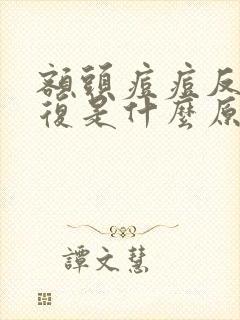 額頭痘痘反
復是什麼原
譚文慧